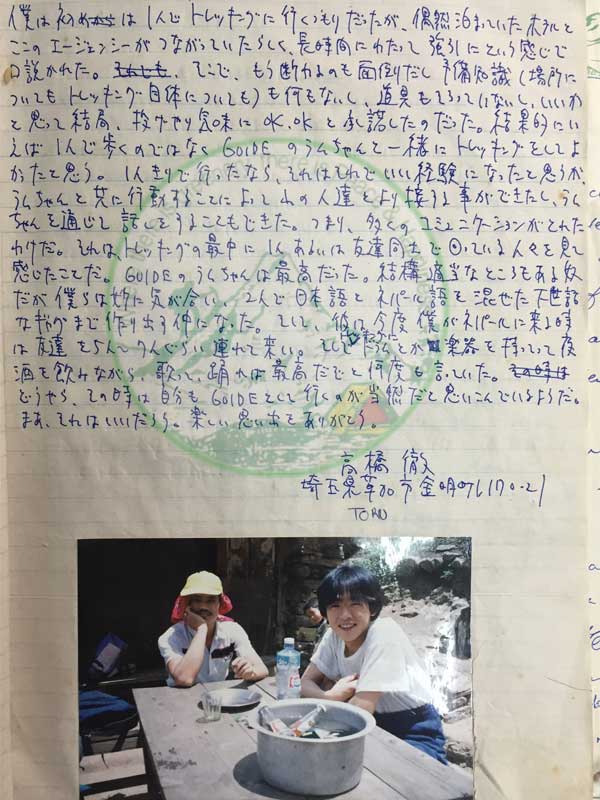 僕は初めは1人でトレッキングに行くつもりだったが、偶然泊まっていたホテルと
このエージェンシーがつながっていたらしく、長時間にわたって強引にという感じで
口説かれた。そこで、もう断わるのも面倒だし予備知識(場所に
ついてもトレッキング自体についても)も何もないし、道具もそろっていないし、いいか
と思って結局、投げやり気味にOK、OKと承諾したのだった。結果的にい
えば1人で歩くのではなくGUIDEのうんちゃんと一緒にトレッキングをしてよ
かったと思う。1人きりで行ったなら、それはそれでいい経験になったと思うが、
うんちゃんと共に行動することによって山の人達とより接する事ができたし、うん
ちゃんを通じて話しをすることもできた。つまり、多くのコミュニケーションがとれた
わけだ。それは、トレッキングの最中に1人あるいは友達同士で回っている人々を見て
感じたことだ。GUIDEのうんちゃんは最高だった。結構適当なところもある奴
だが僕らは妙に気が合い、2人で日本語とネパール語を混ぜた不世話
なギャグまで作り出す仲になった。そして、彼は今度僕がネパールに来る時
は友達を5人、6人ぐらい連れて来い。そして楽器を持ってって夜
酒を飲みながら、歌って、踊れば最高だぞと何度も言っていた。その時は
どうやら、その時は自分もGUIDEとして行くのが当然だと思いこんでいるようだ。
まあ、それはいいだろう。楽しい思い出をありがとう。
高橋 徹
埼玉県草加市金明町
TORU